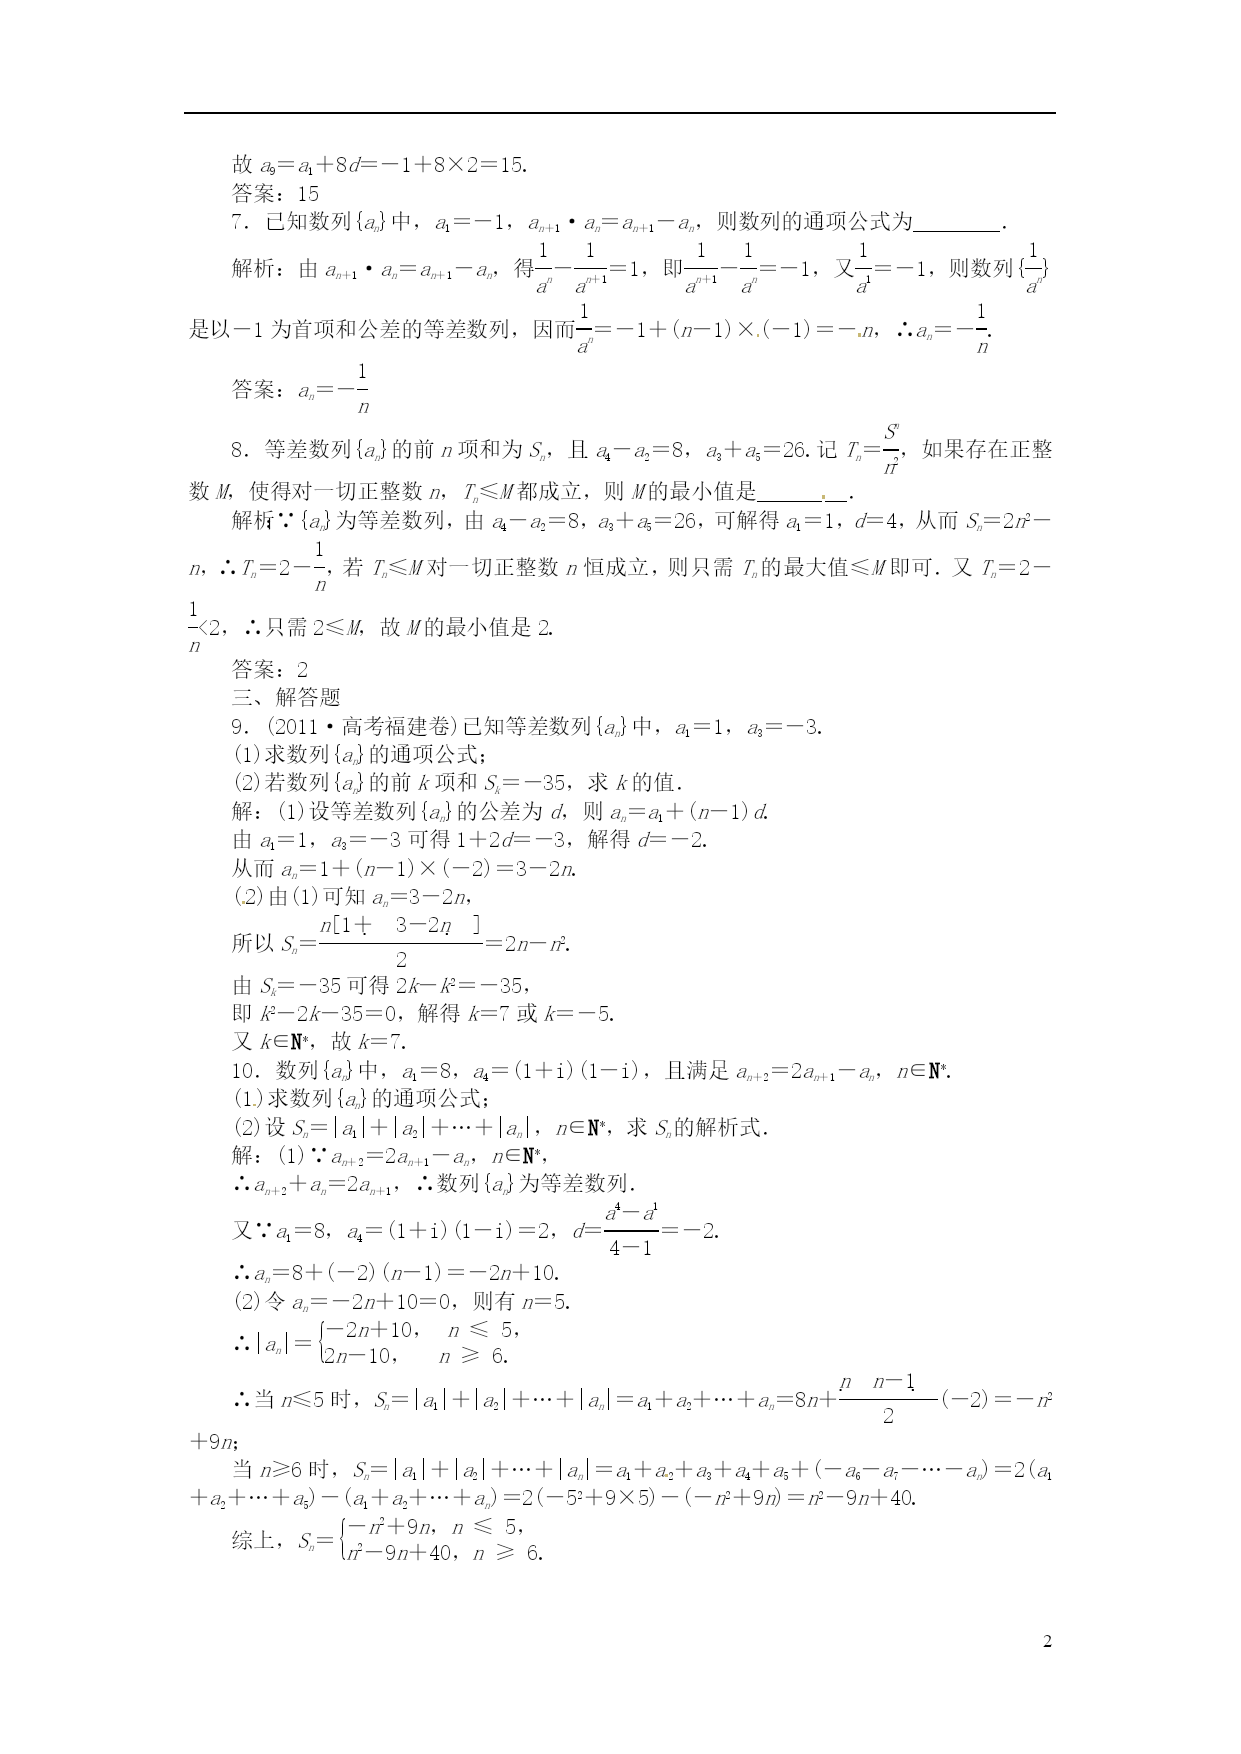 故 a₉=a₁+8d=-1+8×2=15.
答案：15
7．已知数列{aₙ}中，a₁=-1，aₙ₊₁·aₙ=aₙ₊₁-aₙ，则数列的通项公式为________．
解析：由 aₙ₊₁·aₙ=aₙ₊₁-aₙ，得1/aₙ-1/aₙ₊₁=1，即1/aₙ₊₁-1/aₙ=-1，又1/a₁=-1，则数列{1/aₙ}
是以-1 为首项和公差的等差数列，因而1/aₙ=-1+(n-1)×(-1)=-n，∴aₙ=-1/n.
答案：aₙ=-1/n
8．等差数列{aₙ}的前 n 项和为 Sₙ，且 a₄-a₂=8，a₃+a₅=26.记 Tₙ=Sₙ/n²，如果存在正整
数 M，使得对一切正整数 n，Tₙ≤M 都成立，则 M 的最小值是________．
解析：∵{aₙ}为等差数列，由 a₄-a₂=8，a₃+a₅=26，可解得 a₁=1，d=4，从而 Sₙ=2n²-
n，∴Tₙ=2-1/n，若 Tₙ≤M 对一切正整数 n 恒成立，则只需 Tₙ的最大值≤M 即可．又 Tₙ=2-
1/n<2，∴只需 2≤M，故 M 的最小值是 2.
答案：2
三、解答题
9．(2011·高考福建卷)已知等差数列{aₙ}中，a₁=1，a₃=-3.
(1)求数列{aₙ}的通项公式；
(2)若数列{aₙ}的前 k 项和 Sₖ=-35，求 k 的值．
解：(1)设等差数列{aₙ}的公差为 d，则 aₙ=a₁+(n-1)d.
由 a₁=1，a₃=-3 可得 1+2d=-3，解得 d=-2.
从而 aₙ=1+(n-1)×(-2)=3-2n.
(2)由(1)可知 aₙ=3-2n，
所以 Sₙ=n[1+ 3-2n ]/2=2n-n².
由 Sₖ=-35 可得 2k-k²=-35，
即 k²-2k-35=0，解得 k=7 或 k=-5.
又 k∈N*，故 k=7.
10．数列{aₙ}中，a₁=8，a₄=(1+i)(1-i)，且满足 aₙ₊₂=2aₙ₊₁-aₙ，n∈N*.
(1)求数列{aₙ}的通项公式；
(2)设 Sₙ=|a₁|+|a₂|+…+|aₙ|，n∈N*，求 Sₙ的解析式．
解：(1)∵aₙ₊₂=2aₙ₊₁-aₙ，n∈N*，
∴aₙ₊₂+aₙ=2aₙ₊₁，∴数列{aₙ}为等差数列．
又∵a₁=8，a₄=(1+i)(1-i)=2，d=a₄-a₁/4-1=-2.
∴aₙ=8+(-2)(n-1)=-2n+10.
(2)令 aₙ=-2n+10=0，则有 n=5.
∴|aₙ|={-2n+10， n ≤ 5，
2n-10， n ≥ 6.
∴当 n≤5 时，Sₙ=|a₁|+|a₂|+…+|aₙ|=a₁+a₂+…+aₙ=8n+n n-1/2(-2)=-n²
+9n；
当 n≥6 时，Sₙ=|a₁|+|a₂|+…+|aₙ|=a₁+a₂+a₃+a₄+a₅+(-a₆-a₇-…-aₙ)=2(a₁
+a₂+…+a₅)-(a₁+a₂+…+aₙ)=2(-5²+9×5)-(-n²+9n)=n²-9n+40.
综上，Sₙ={-n²+9n，n ≤ 5，
n²-9n+40，n ≥ 6.
2